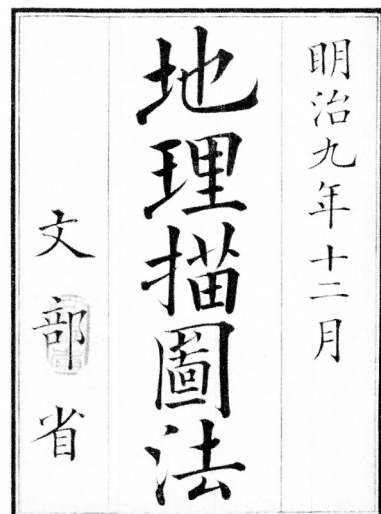 明治九年十二月
地理描圖法
文部省